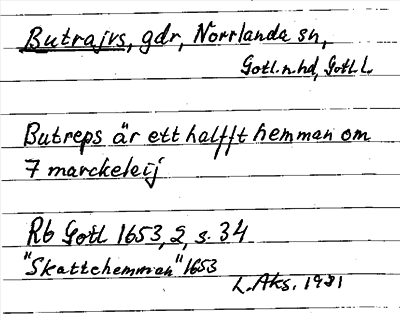 Butrajvs, gdr, Norrlanda sn,
Gotl. n. hd, Gotl. l.
Butreps är ett halfft hemman om
7 marckeleij
Rb Gotl 1653, 2, s. 34
"Skattehemman" 1653
L. Aks. 1931